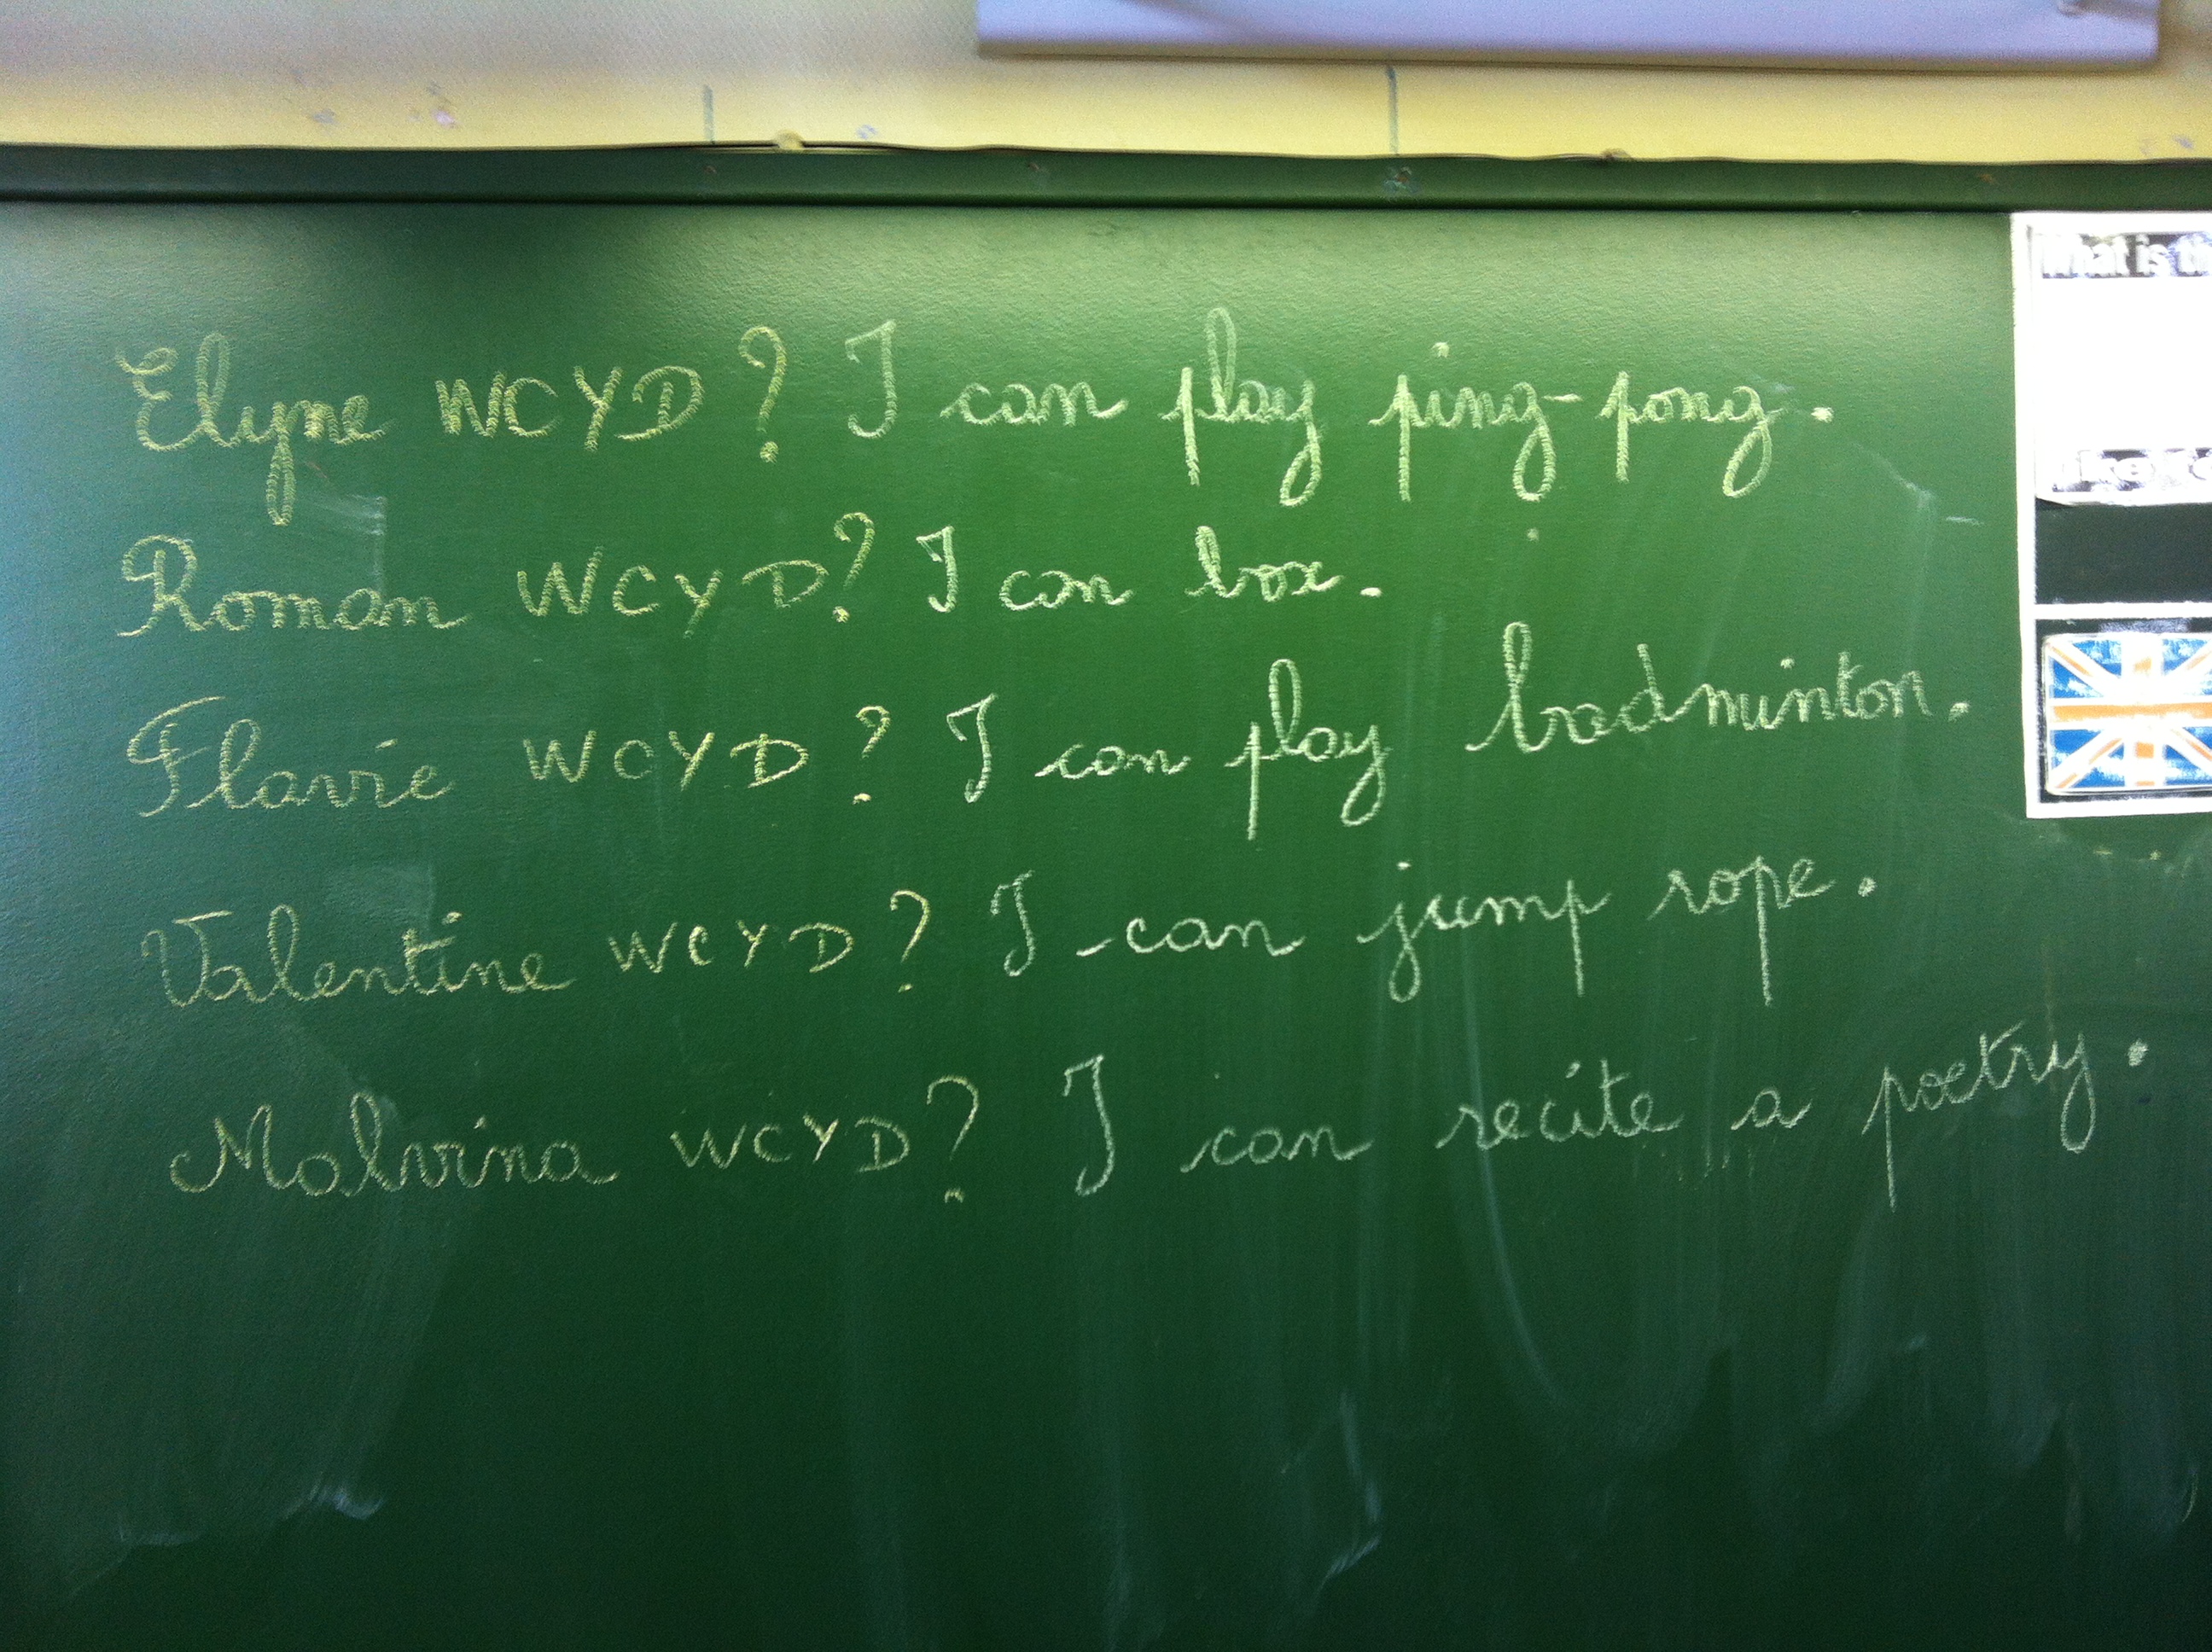 Elyne WCYD? I can play ping-pong.
Roman WCYD? I can box.
Flavie WCYD? I can play badminton.
Valentine WCYD? I can jump rope.
Malvina WCYD? I can recite a poetry.
What is